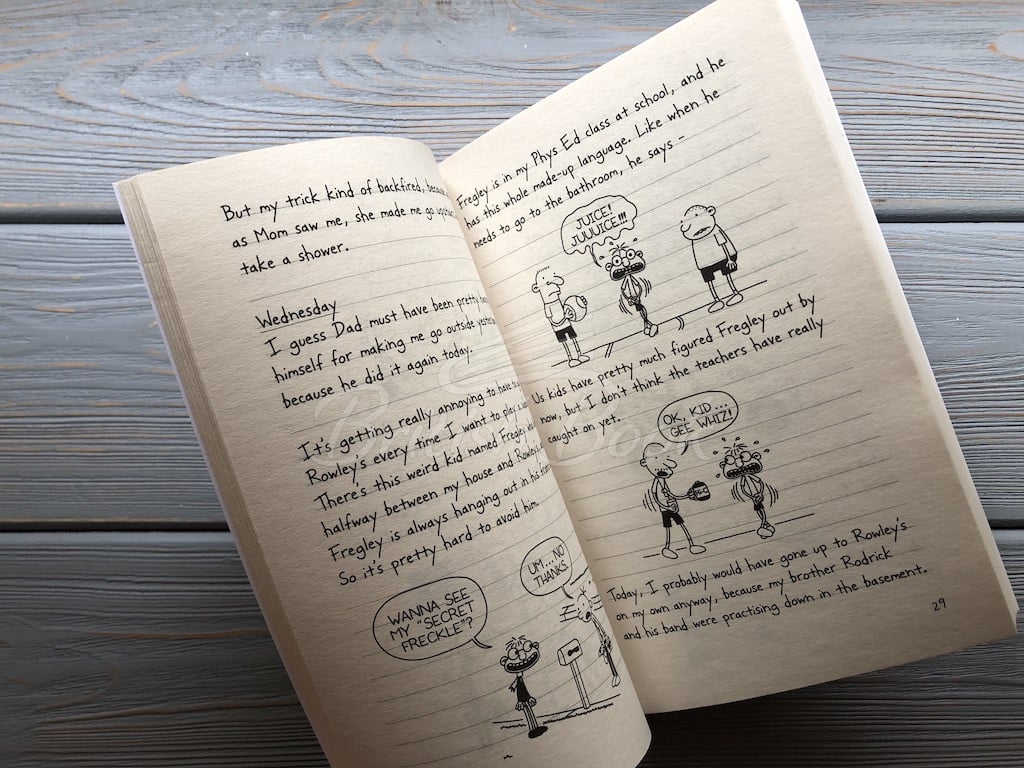 But my trick kind of backfired,
as Mom saw me, she made me go
take a shower.
Wednesday
I guess Dad must have been pretty
himself for making me go outside
because he did it again today.
It's getting really annoying to have
Rowley's every time I want to play a
There's this weird kid named Fregley
halfway between my house and Rowley's
Fregley is always hanging out in his
So it's pretty hard to avoid him.
WANNA SEE
MY "SECRET
FRECKLE"?
UM...NO
THANKS.
Fregley is in my Phys Ed class at school, and he
has this whole made-up language. Like when he
needs to go to the bathroom, he says -
JUICE!
JUUUICE!!!
Us kids have pretty much figured Fregley out by
now, but I don't think the teachers have really
caught on yet.
OK, KID...
GEE WHIZ!
Today, I probably would have gone up to Rowley's
on my own anyway, because my brother Rodrick
and his band were practising down in the basement.
29